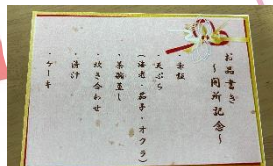 お品書き
～開所記念～
・赤飯
・天ぷら
(海老・茄子・オクラ)
・茶碗蒸し
・炊き合わせ
・清汁
・ケーキ